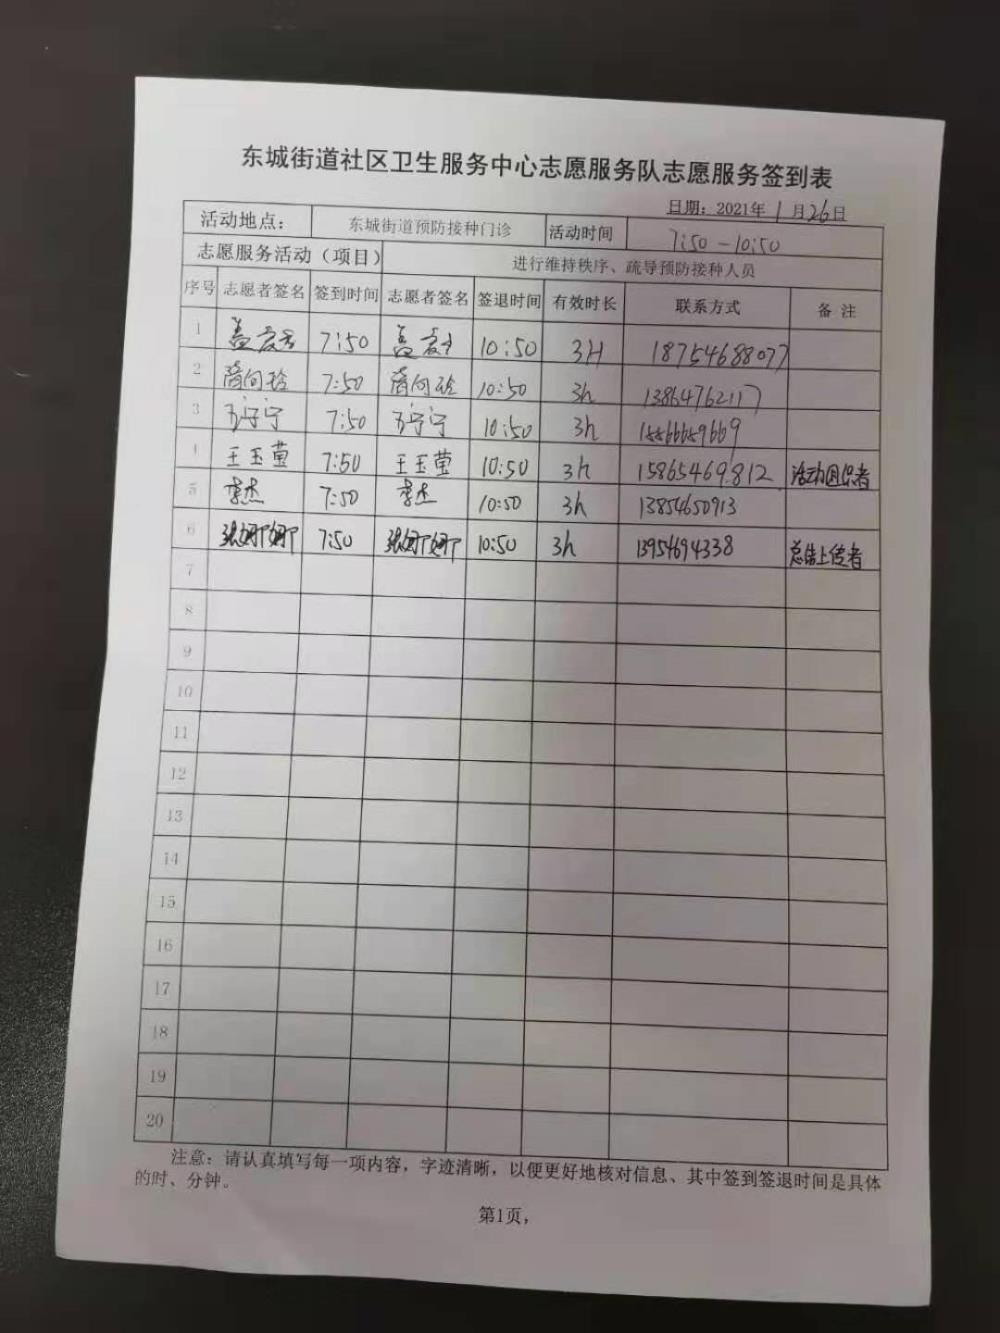 东城街道社区卫生服务中心志愿服务队志愿服务签到表
日期：2021年1月26日
活动地点： 东城街道预防接种门诊 活动时间 7:50-10:50
志愿服务活动（项目） 进行维持秩序、疏导预防接种人员
序号 志愿者签名 签到时间 志愿者签名 签退时间 有效时长 联系方式 备 注
1 7:50 10:50 3H 18754688077
2 7:50 10:50 3h 13864762117
3 7:50 10:50 3h
4 王玉莹 7:50 王玉莹 10:50 3h 15865469812 活动组织者
5 李杰 7:50 李杰 10:50 3h 13854650913
6 张娜娜 7:50 张娜娜 10:50 3h 13954694338 总结上传者
7
8
9
10
11
12
13
14
15
16
17
18
19
20
注意：请认真填写每一项内容，字迹清晰，以便更好地核对信息、其中签到签退时间是具体
的时、分钟。
第1页，